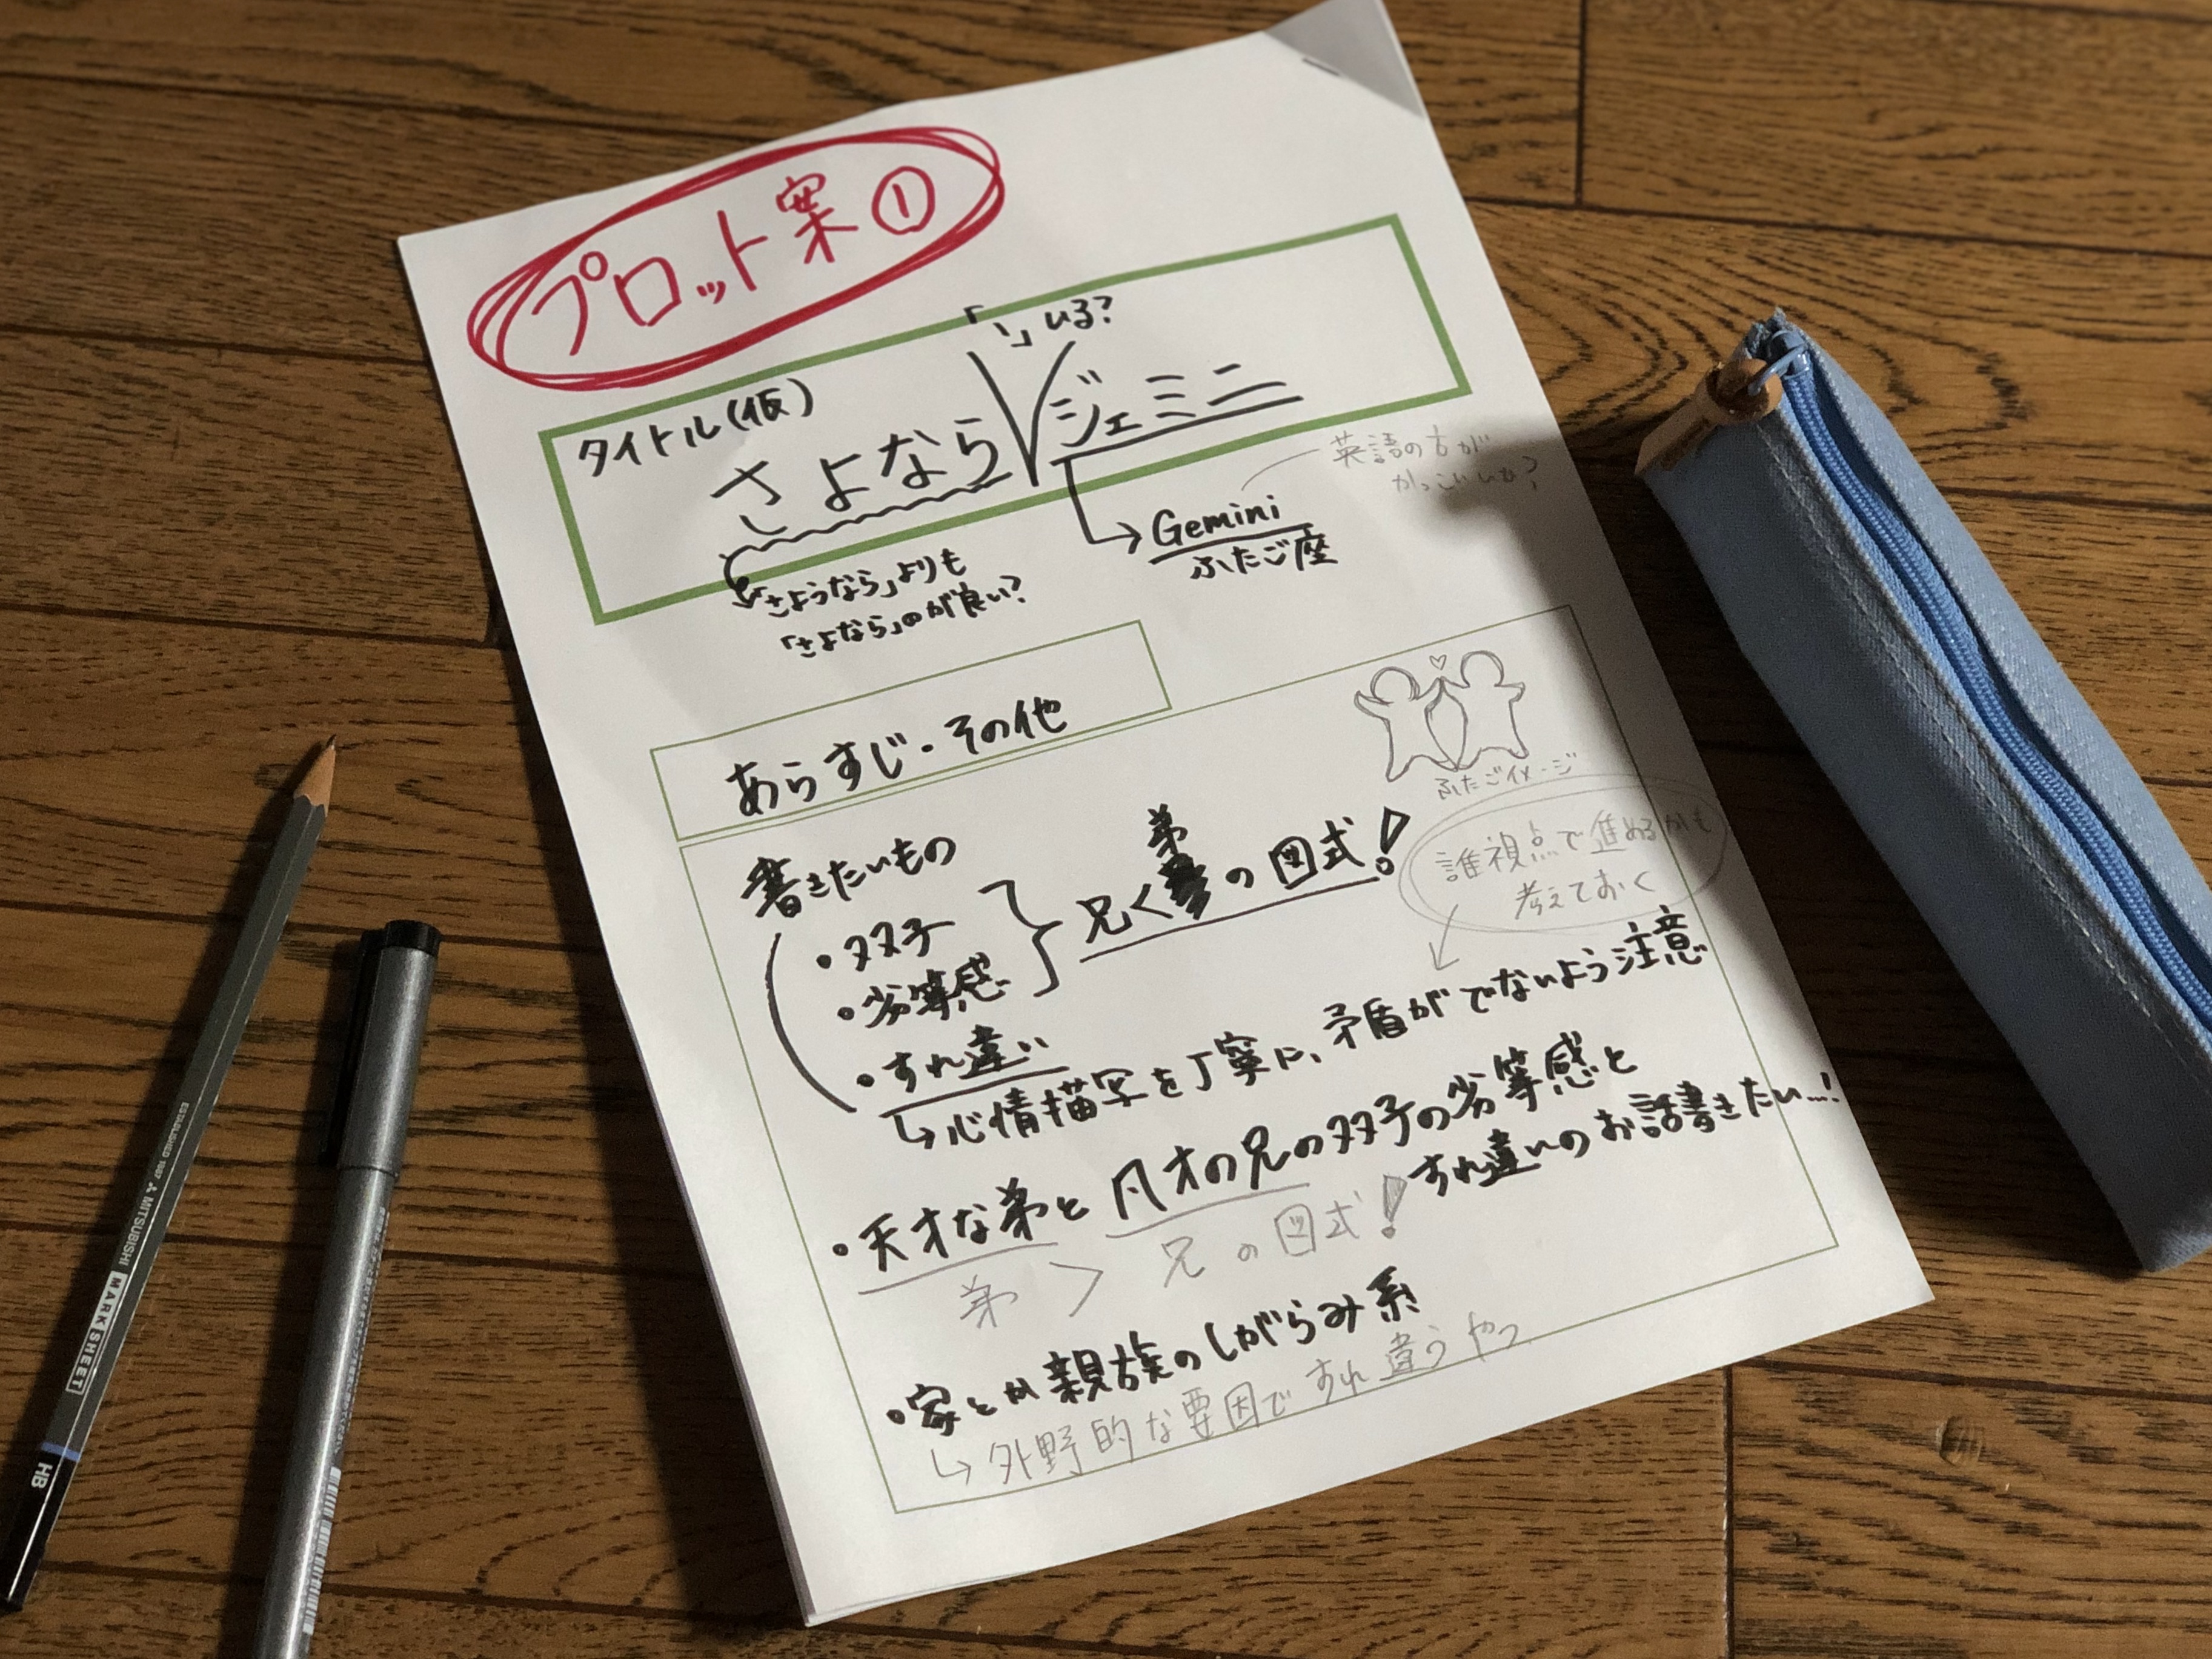 プロット案①
「、」いる?
タイトル(仮)
さよなら ジェミニ
英語の方が
かっこいいかな?
Gemini
ふたご座
「さようなら」よりも
「さよなら」のが良い?
あらすじ・その他
ふたごイメージ
書きたいもの
・双子
・劣等感
・すれ違い
兄<弟の図式!
誰視点で進めるかも
考えておく
↳心情描写を丁寧に、矛盾がでないよう注意
・天才な弟と凡才の兄の双子の劣等感と
すれ違いのお話書きたい…!
弟 > 兄の図式!
・家とか親族のしがらみ系
↳外野的な要因ですれ違うやつ
MITSUBISHI MARKSHEET
HB